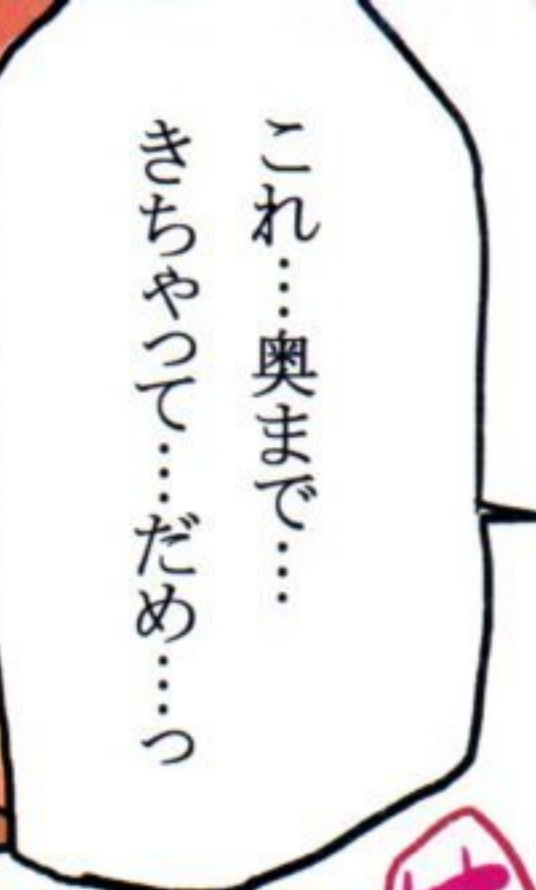 これ…奥まで…
きちゃって…だめ…っ